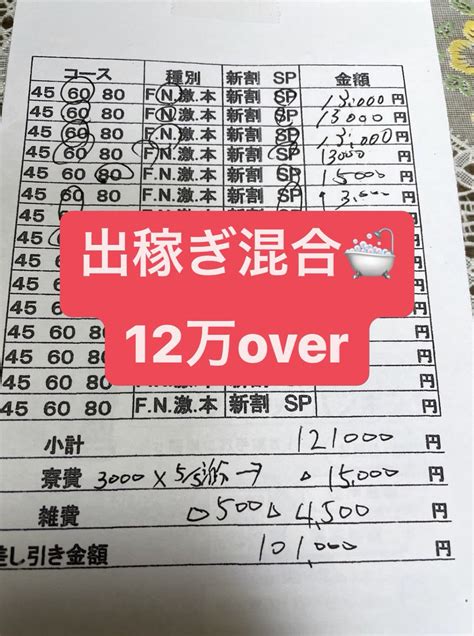 コース 種別 新割 SP 金額
45 60 80 F.N.激.本 新割 SP 13,000 円
45 60 80 F.N.激.本 新割 SP 13000 円
45 60 80 F.N.激.本 新割 SP 13,000 円
45 60 80 F.N.激.本 新割 SP 13000 円
45 60 80 F.N.激.本 新割 SP 15000 円
45 60 80 F.N.激.本 新割 SP 円
45 円
45 円
出稼ぎ混合🛁
45 円
45 円
12万over
45 60 円
45 60 80 F.N.激.本 新割 SP 円
45 60 80 F.N.激.本 新割 SP 円
小計 121000 円
寮費 3000 × 5/5 → △ 15,000 円
雑費 △500 △ 4,500 円
差し引き金額 101,000 円